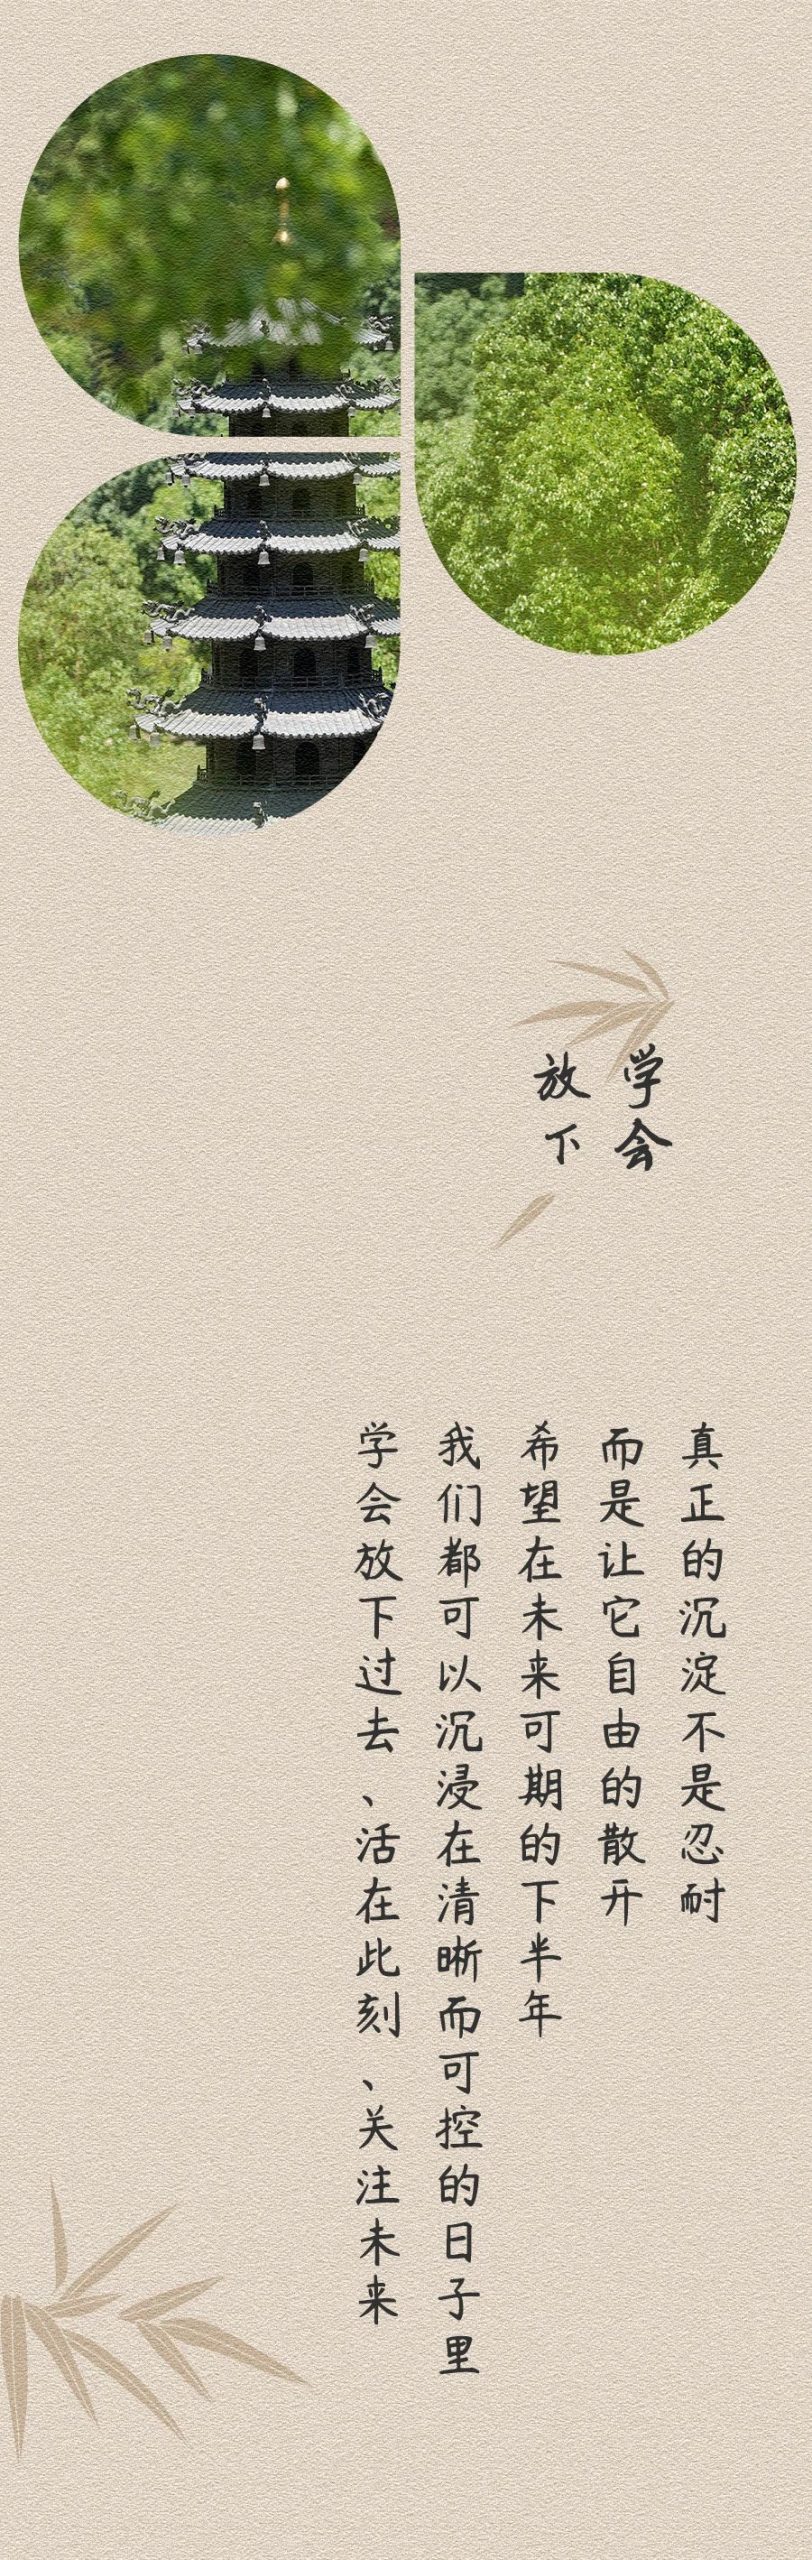 学会
放下
真正的沉淀不是忍耐
而是让它自由的散开
希望在未来可期的下半年
我们都可以沉浸在清晰而可控的日子里
学会放下过去、活在此刻、关注未来